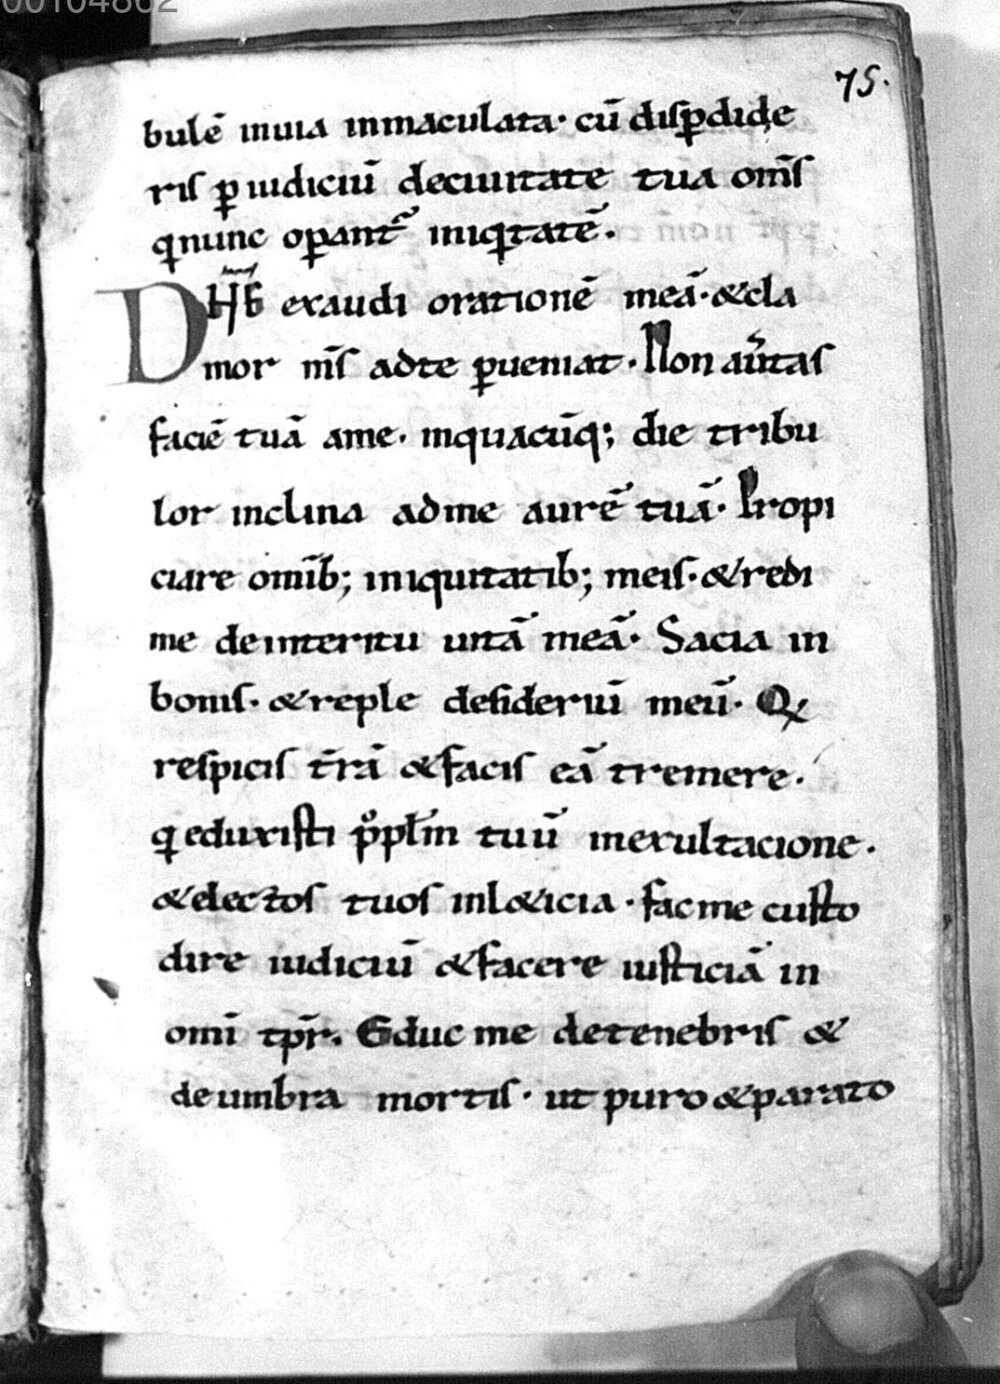 00104862
75.
bulē inuia inmaculata· cū disp̄dide
ris p̱ iudiciū deciuitate tua om̄s
qnunc op̱ant᷑ iniqtatē.
DNE exaudi orationē meā·&cla
mor m̄s adte p̱ueniat· Non au̅tas
faciē tuā ame· inquacūq; die tribu
lor inclina adme aurē tuā· Propi
ciare om̄ib; iniquitatib; meis·&redi
me deinteritu uitā meā· Sacia in
bonis·&reple desideriū meū· Q
respicis t̄rā &facis eā tremere·
q eduxisti p̊pl̄m tuū inexultacione·
&electos tuos inl&icia· fac me custo
dire iudiciū &facere iusticiā in
omī tp̄r. Educ me detenebris &
de umbra mortis· ut puro &parato